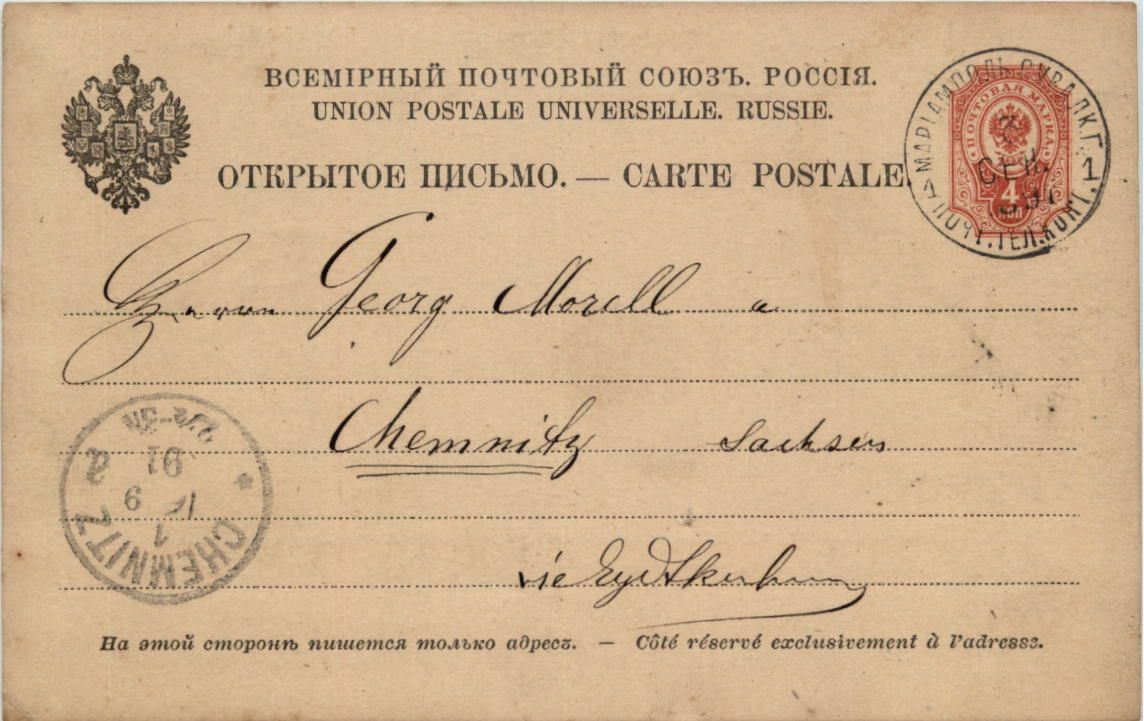 ВСЕМІРНЫЙ ПОЧТОВЫЙ СОЮЗЪ. РОССІЯ.
UNION POSTALE UNIVERSELLE. RUSSIE.
ОТКРЫТОЕ ПИСЬМО. — CARTE POSTALE.
ПОЧТОВАЯ МАРКА
4
КОП
МАРІАМПОЛЬ СУВАЛК.Г. 1
ПОЧТ.ТЕЛ.КОНТ.
СЕН
Herrn Georg Morell
Chemnitz Sachsen
CHEMNITZ
9
91
Eydtkuhnen
На этой сторонѣ пишется только адресъ. — Côté réservé exclusivement à l'adresse.